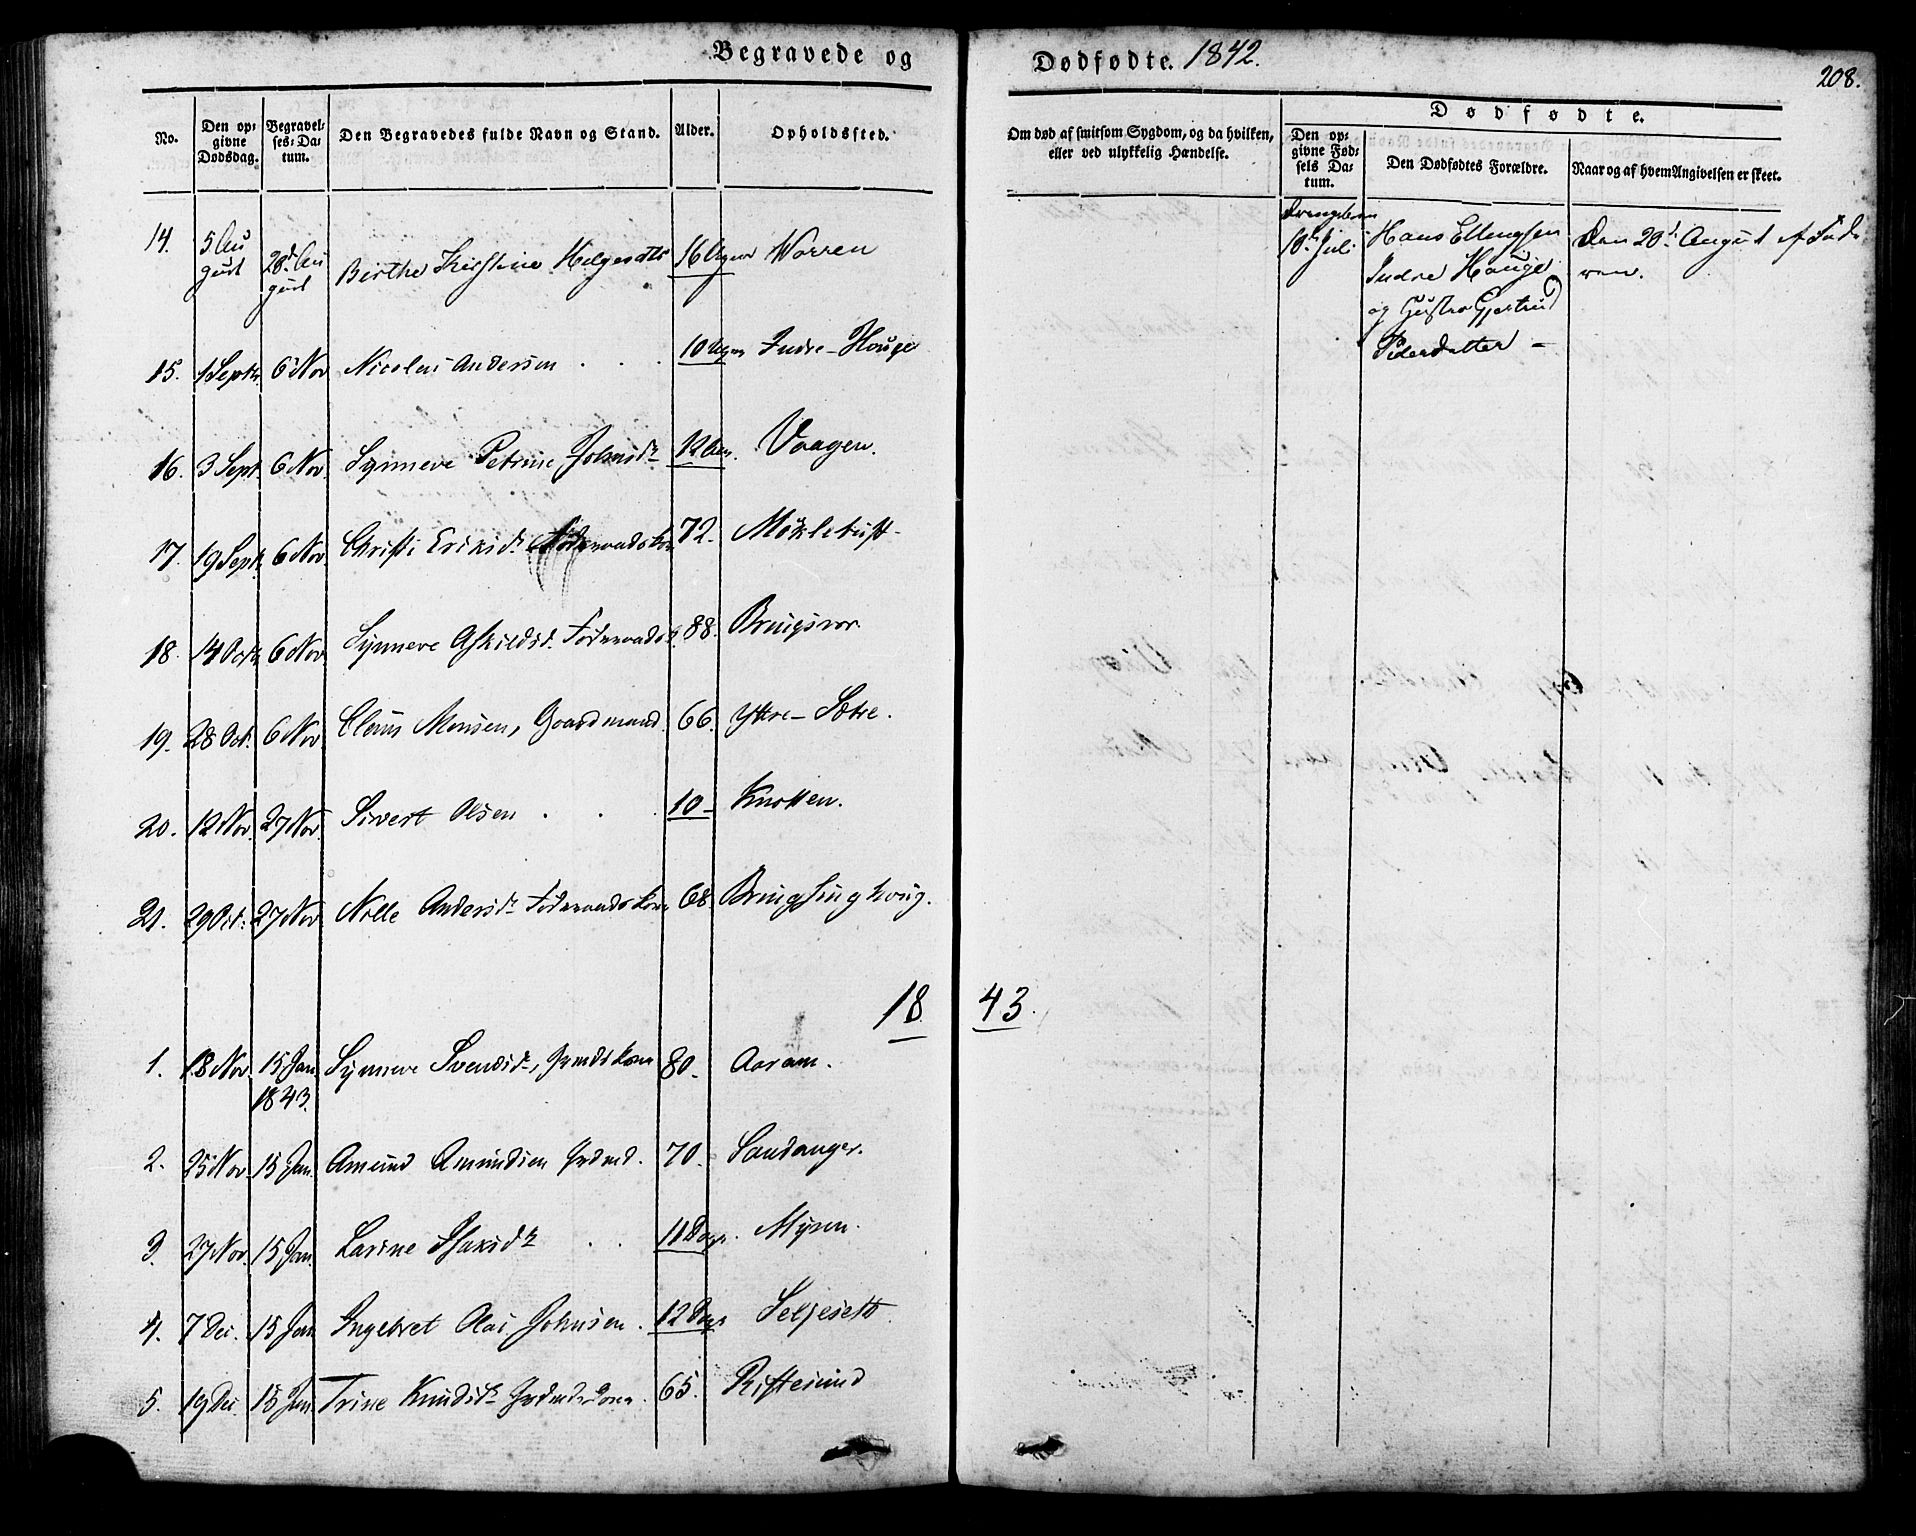 Begravede og Dødfødte. 1842.
208.
No. | Den opgivne Dødsdag. | Begravelses-Datum. | Den Begravedes fulde Navn og Stand. | Alder. | Opholdssted. | Om død af smitsom Sygdom, og da hvilken, eller ved ulykkelig Hændelse. | Dødfødte. | Den opgivne Fødsels Datum. | Den Dødfødtes Forældre. | Naar og af hvem Angivelsen er skeet.
14. 5 August 28d August Birthe Kirstine Helgesdtr 16 Uger Worren
Drengebarn 10de Juli Hans Ellingsen Indre Houge og Hustru Gjertrud Pedersdatter – Den 20d August af Faderen.
15. 1 Septr 6 Nov Nicolai Andersen . . . 10 Uger Indre-Houge
16. 3 Sept. 6 Nov. Synneve Petrine Johnsdr 12 Uger. Vaagen.
17. 19 Septr 6 Nov. Christi Eriksdr Føderaadskone 72. Mökletust.
18. 14 Octr 6 Nov. Synneve Askildsdr Føderaadsk. 88. Bringsvor.
19. 28 Oct. 6 Nov Claus Monsen, Gaardmand. 66. Yttre-Sætre.
20. 12 Nov. 27 Nov. Sivert Olsen . . . 10 – Knotten.
21. 29 Oct. 27 Nov Nille Andersdr Føderaadskone 68. Bringsinghoug.
1843.
1. 18 Nov. 15 Jan 1843. Synneve Svendsdr, Grmdskone 80. Aaram.
2. 25 Nov. 15 Jan. Amund Amundsen 70. Sandanger.
3. 27 Nov. 15 Jan. Larine Isaksdr . . 11 Dage. Myren.
4. 7 Dec. 15 Jan Ingebret Olai Johnsen. 12 Dage Seljeseth.
5. 19 Dec. 15 Jan. Trine Knudsdr 65. Riftesund